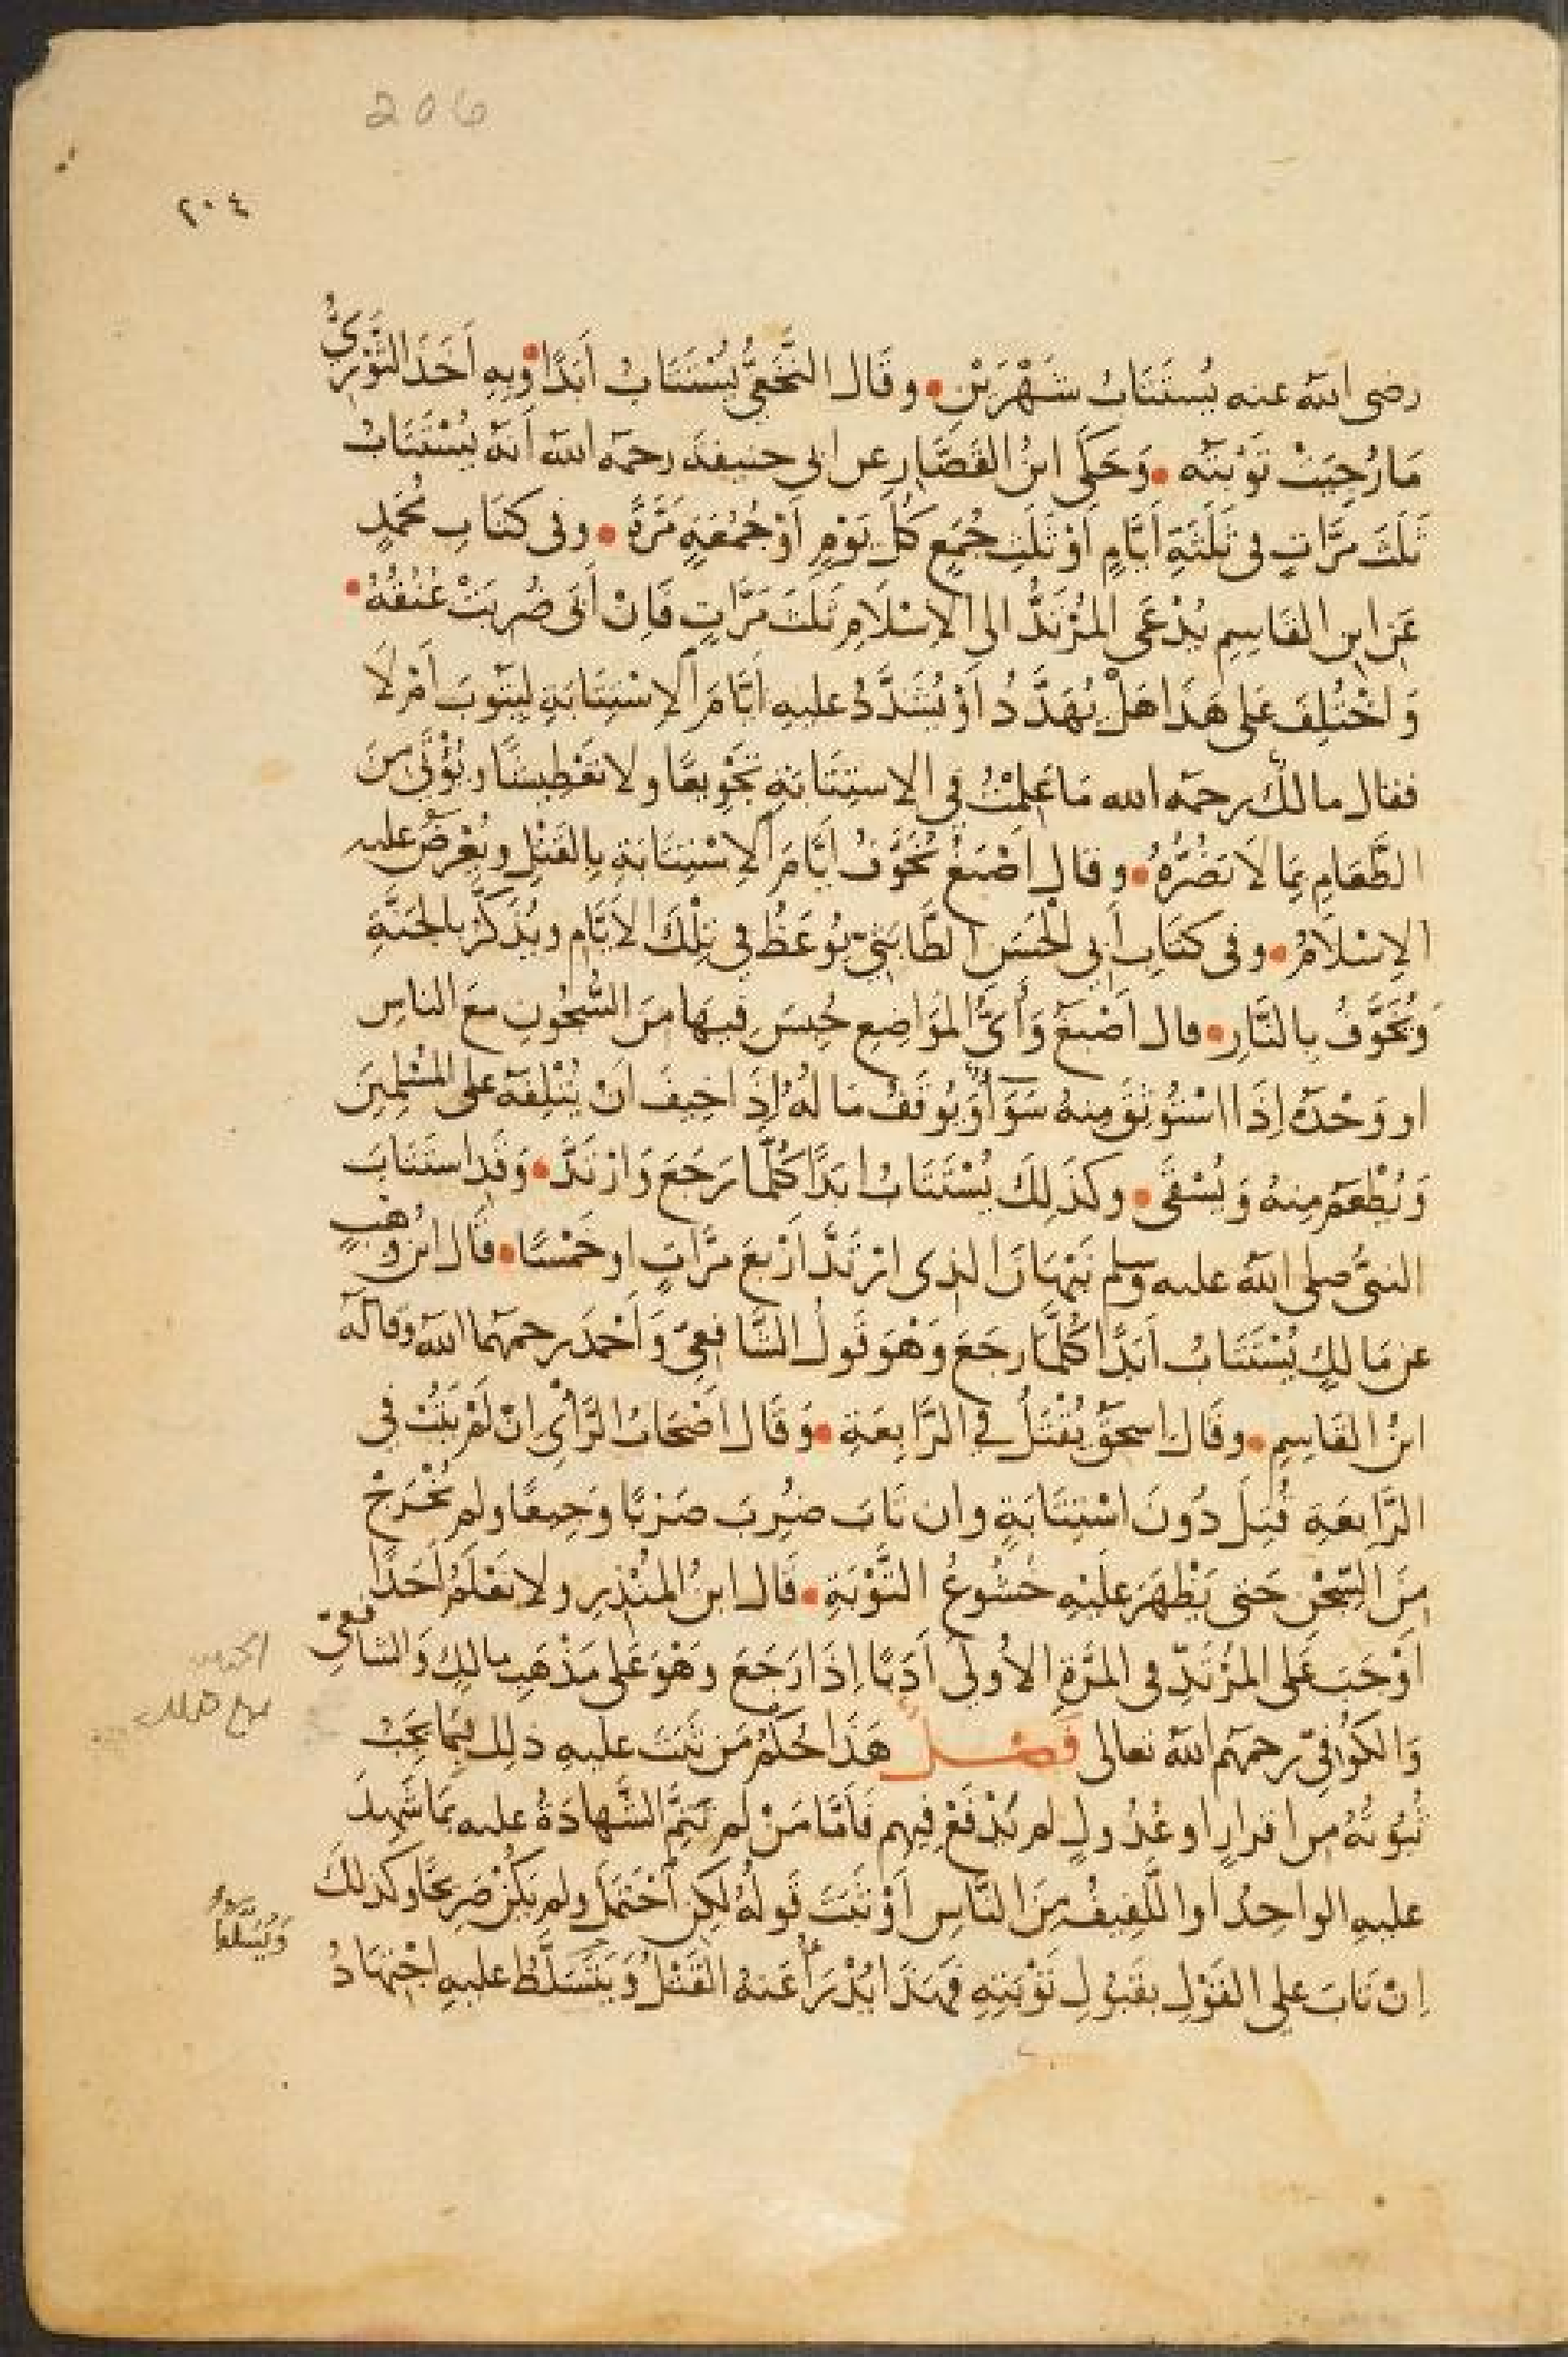 206
٢٠٤
رضى الله عنه يُستَتَابُ شَهْرَيْنِ • وقَال النَّخَعِيُّ يُسْتَتَابُ أبَدًا • وبِهِ أخَذَ الثَّوْرِيُّ
مَا رُجِيَتْ تَوْبَتُه • وَحَكَى ابنُ القَصَّارِ عن ابى حنيفةَ رحمَه اللهُ أنّهُ يُسْتَتَابُ
ثَلَثَ مَرَّاتٍ فى ثَلَثَةِ أيَّامٍ أوْ ثَلَثِ جُمَعٍ كُلَّ يَوْمٍ أوْ جُمُعَةٍ مَرَّةً • وفى كتَابِ مُحَمَّدٍ
عَنِ ابنِ القَاسِمِ يُدْعَى المُرْتَدُّ الى الإسْلَامِ ثَلَثَ مَرَّاتٍ فَاِنْ أبَى ضُرِبَتْ عُنُقُهُ •
وَاخْتُلِفَ عَلى هَذَا هَلْ يُهَدَّدُ أوْ يُشَدَّدُ عليهِ أيَّامَ الإسْتِتَابَةِ لِيَتُوبَ أمْ لَا
فقال مالكٌ رحمَه الله مَا عَلِمْتُ فى الاستِتَابَةِ تَجْوِيعًا ولا تَعْطِيشًا ويُؤْتَى مِنَ
الطَّعَامِ بِمَا لَا يَضُرُّهُ • وقال أصْبَغُ يُخَوَّفُ أيَّامَ الإسْتِتَابَةِ بِالقَتْلِ ويُعْرَضُ عليه
الإسْلَامُ • وفى كتَابِ أبِى الحَسَنِ الطَّابِثِيّ يُوعَظُ فى تِلْكَ الأيَّامِ ويُذَكَّرُ بالجَنَّةِ
ويُخَوَّفُ بِالنَّارِ • قال أصْبَغُ وَأَىَّ المَوَاضِعِ حُبِسَ فيهَا مِنَ السُّجُونِ مَعَ الناسِ
او وَحْدَهُ إذَا اسْتُوثِقَ مِنهُ سَوَآءٌ وَيُوقَفُ مَالُهُ إذَا خِيفَ انْ يُتْلِفَهُ على المُسْلِمِينَ
وَيُطْعَمُ مِنهُ وَيُسْقَى • وكَذَلِكَ يُسْتَتَابُ ابَدًا كُلَّمَا رَجَعَ وَارْتَدَّ • وَقَدِ اسْتَتَابَ
النبىُّ صلى الله عليه وسلم نَبْهَانَ الذى ارْتَدَّ ارْبَعَ مَرَّاتٍ او خَمْسًا • قَالَ ابنُ وَهْبٍ
عن مَالِكٍ يُسْتَتَابُ أبَدًا كُلَّمَا رجَعَ وَهْوَ قَولُ الشَّافِعِيّ وَأحْمَدَ رحمهما الله وقَالَه
ابنُ القَاسِمِ • وقَالَ اسحقُ يُقْتَلُ فى الرَّابِعَةِ • وَقَالَ أصْحَابُ الرَّأْىِ انْ لَمْ يَتُبْ فى
الرَّابِعَةِ قُتِلَ دُونَ اسْتِتَابَةٍ وان تَابَ ضُرِبَ ضَرْبًا وَجِيعًا ولم يُخْرَجْ
مِنَ السِّجْنِ حَتى يَظْهَرَ عَلَيْهِ خُشُوعُ التَّوْبَةِ • قَالَ ابنُ المُنْذِرِ ولا نَعْلَمُ أحَدًا
أوْجَبَ عَلَى المُرْتَدِّ فى المَرَّةِ الأُولَى أدَبًا إذَا رَجَعَ وهْوَ عَلى مَذْهَبِ مالِكٍ وَالشافعىّ
وَالكُوفىّ رحمهم الله تعالى فَصْلٌ هَذَا حُكْمُ مَن ثَبَتَ عليهِ ذلِك بِمَا يَجِبُ
ثُبُوتُهُ مِن اقرارٍ او عُدُولٍ لم يُدْفَعْ فِيهِم فَأمَّا مَنْ لم تَتِمَّ الشَّهادَةُ عليه بِمَا شَهِدَ
عليهِ الواحِدُ اوِ اللَّفِيفُ مِنَ النَّاسِ أوْ ثَبَتَ قَولُهُ لكِنِ احْتَمَلَ ولم يَكُنْ صَرِيحًا وكَذلِكَ
اِنْ تَابَ على القَوْلِ بقَبُولِ تَوْبَتِهِ فَهَذَا يُدْرَأُ عَنهُ القَتْلُ وَيَتَسَلَّطُ عليهِ اجْتِهَادُ